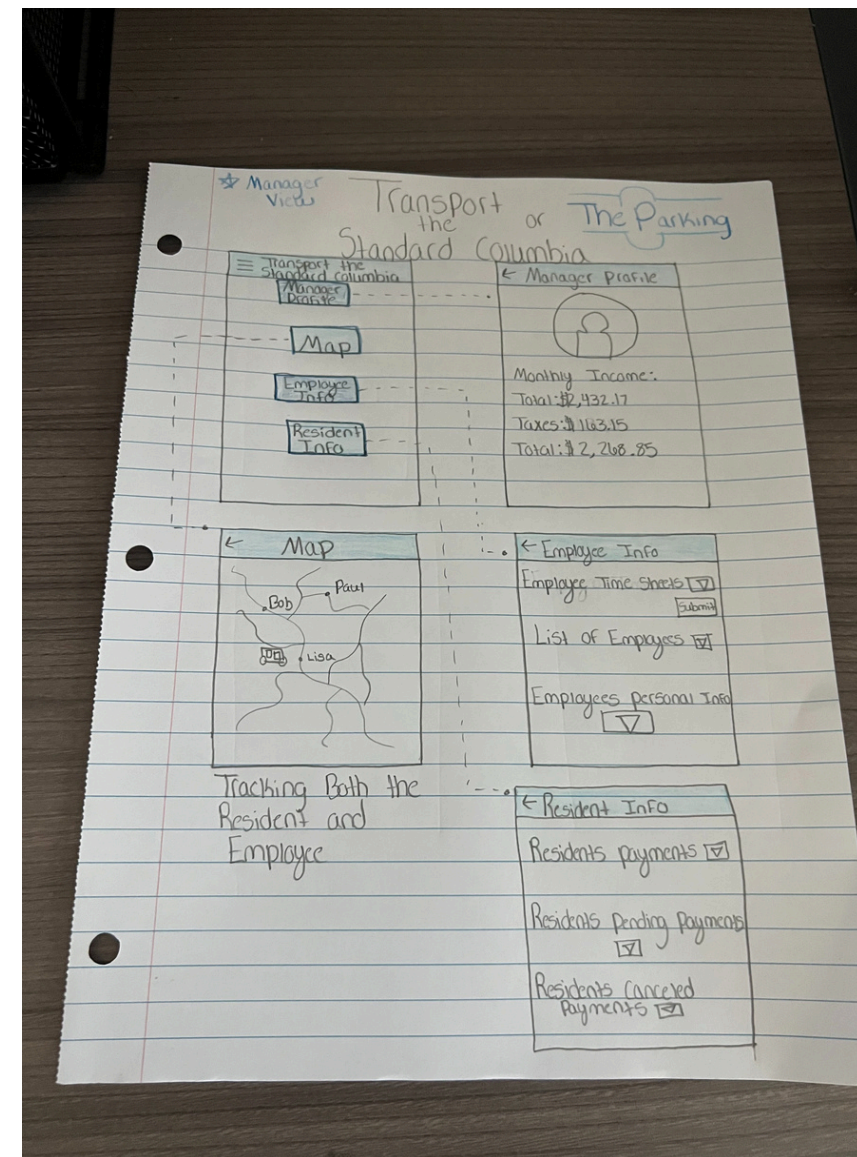 ☆ Manager
View
Transport
the
Standard Columbia
or
The Parking
Transport the
Standard Columbia
Manager
Profile
Map
Employee
Info
Resident
Info
← Manager Profile
Monthly Income:
Total:$2,432.17
Taxes:$163.15
Total:$2,268.85
← Map
Bob
Paul
Lisa
Tracking Both the
Resident and
Employee
← Employee Info
Employee Time Sheets
Submit
List of Employees
Employees personal Info
← Resident Info
Residents payments
Residents pending payments
Residents Canceled
Payments